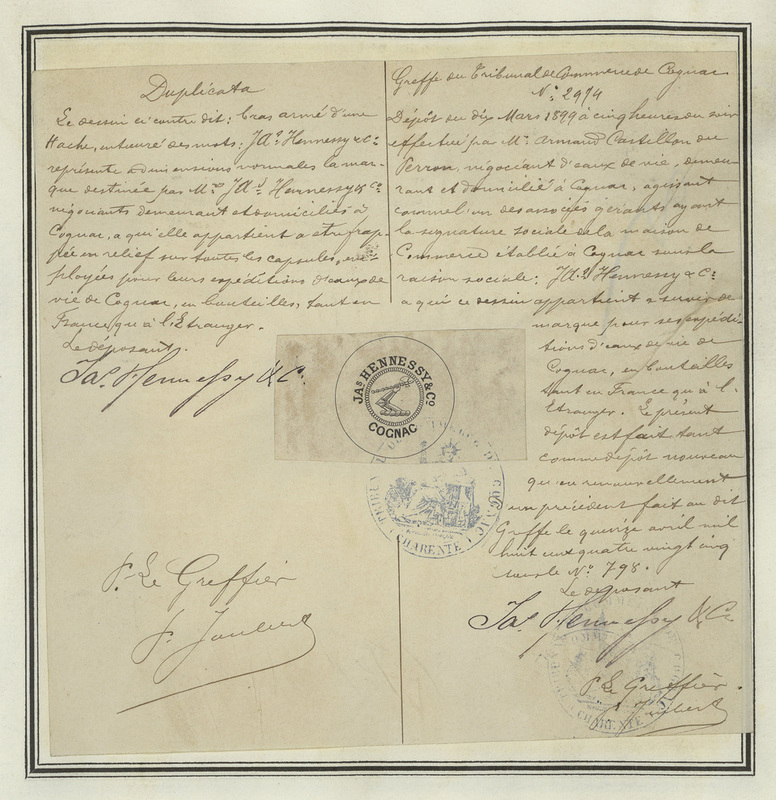 Duplicata
Le dessin ci contre dit: bras armé d'une
Hache, entouré des mots: JAs Hennessy & Co
représente en dimensions normales la mar-
que destinée par Mrs JAs Hennessy & Co
négociants demeurant et domiciliés à
Cognac, a qui elle appartient a être frap-
pée en relief sur toutes les capsules, em-
ployées pour leurs expéditions d'eaux de
vie de Cognac, en bouteilles, tant en
France qu'à l'Etranger.
Le déposant.
Jas Hennessy & Co
P. Le Greffier
Greffe du Tribunal de Commerce de Cognac
No 2974
Dépôt du dix Mars 1899 à cinq heures du soir
effectué par Mr Armand Castillon du
Perron, négociant d'eaux de vie, demeu-
rant et domicilié à Cognac, agissant
comme l'un des associés gérants ayant
la signature sociale de la maison de
Commerce établie à Cognac sous la
raison sociale: JAs Hennessy & Co
a qui ce dessin appartient a servir de
marque pour ses expédi-
tions d'eaux de vie de
Cognac, en bouteilles
tant en France qu'à l'
Etranger. Le présent
dépôt est fait tant
comme dépôt nouveau
qu'en renouvellement
un précédent fait au dit
Greffe le quinze avril mil
huit cent quatre vingt cinq
sous le No 798.
Le déposant
Jas Hennessy & Co
P. Le Greffier
JAs HENNESSY & Co
COGNAC
TRIBUNAL DE COMMERCE DE COGNAC
CHARENTE
CHARENTE